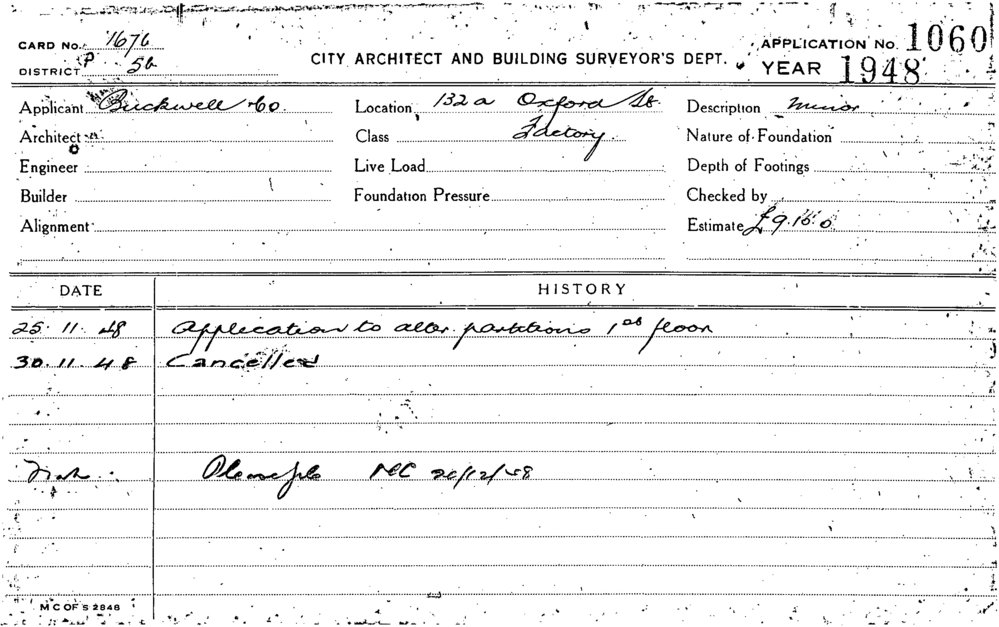 CARD No. 1676
DISTRICT P 5b
CITY ARCHITECT AND BUILDING SURVEYOR'S DEPT.
APPLICATION No. 1060
YEAR 1948
Applicant Buckwell & Co.
Location 132a Oxford St.
Description Minor
Architect
Class Factory.
Nature of Foundation
Engineer
Live Load
Depth of Footings
Builder
Foundation Pressure
Checked by
Alignment
Estimate £9.15.0
DATE HISTORY
25.11.48 Application to alter partitions 1st floor
30.11.48 Cancelled
Please file 20/12/48
M C OF S 2848